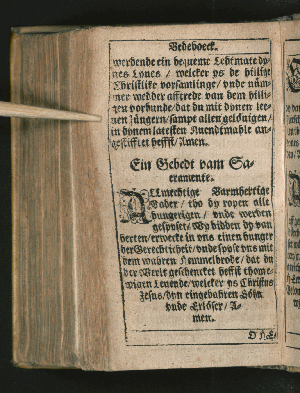 Bedeboeck.
werdende ein bequeme Ledtmate dy-
nes Lyues / welcker ys de hillige
Christlike vorsamlinge / vnde nüm-
mer wedder affrede van dem hilli-
gen vorbunde / dat du mit dynen lee-
uen Jüngern / sampt allen gelöuigen /
in dynem latesten Auendtmahle an-
gestifftet heffst / Amen.
Ein Gebedt vam Sa-
cramente.
ALlmechtige Barmhertige
Vader / tho dy ropen alle
hungerigen / vnde werden
gespyset / Wy bidden dy van
herten / erwecke in vns einen hunger
der Gerechticheit / vnde spyse vns mit
dem wahren Hemmelbrode / dat du
der Werlt geschencket heffst thom e-
wigen Leuende / welcker ys Christus
Jesus / dyn eingebahren Söhn
vnde Erlöser / A-
men.